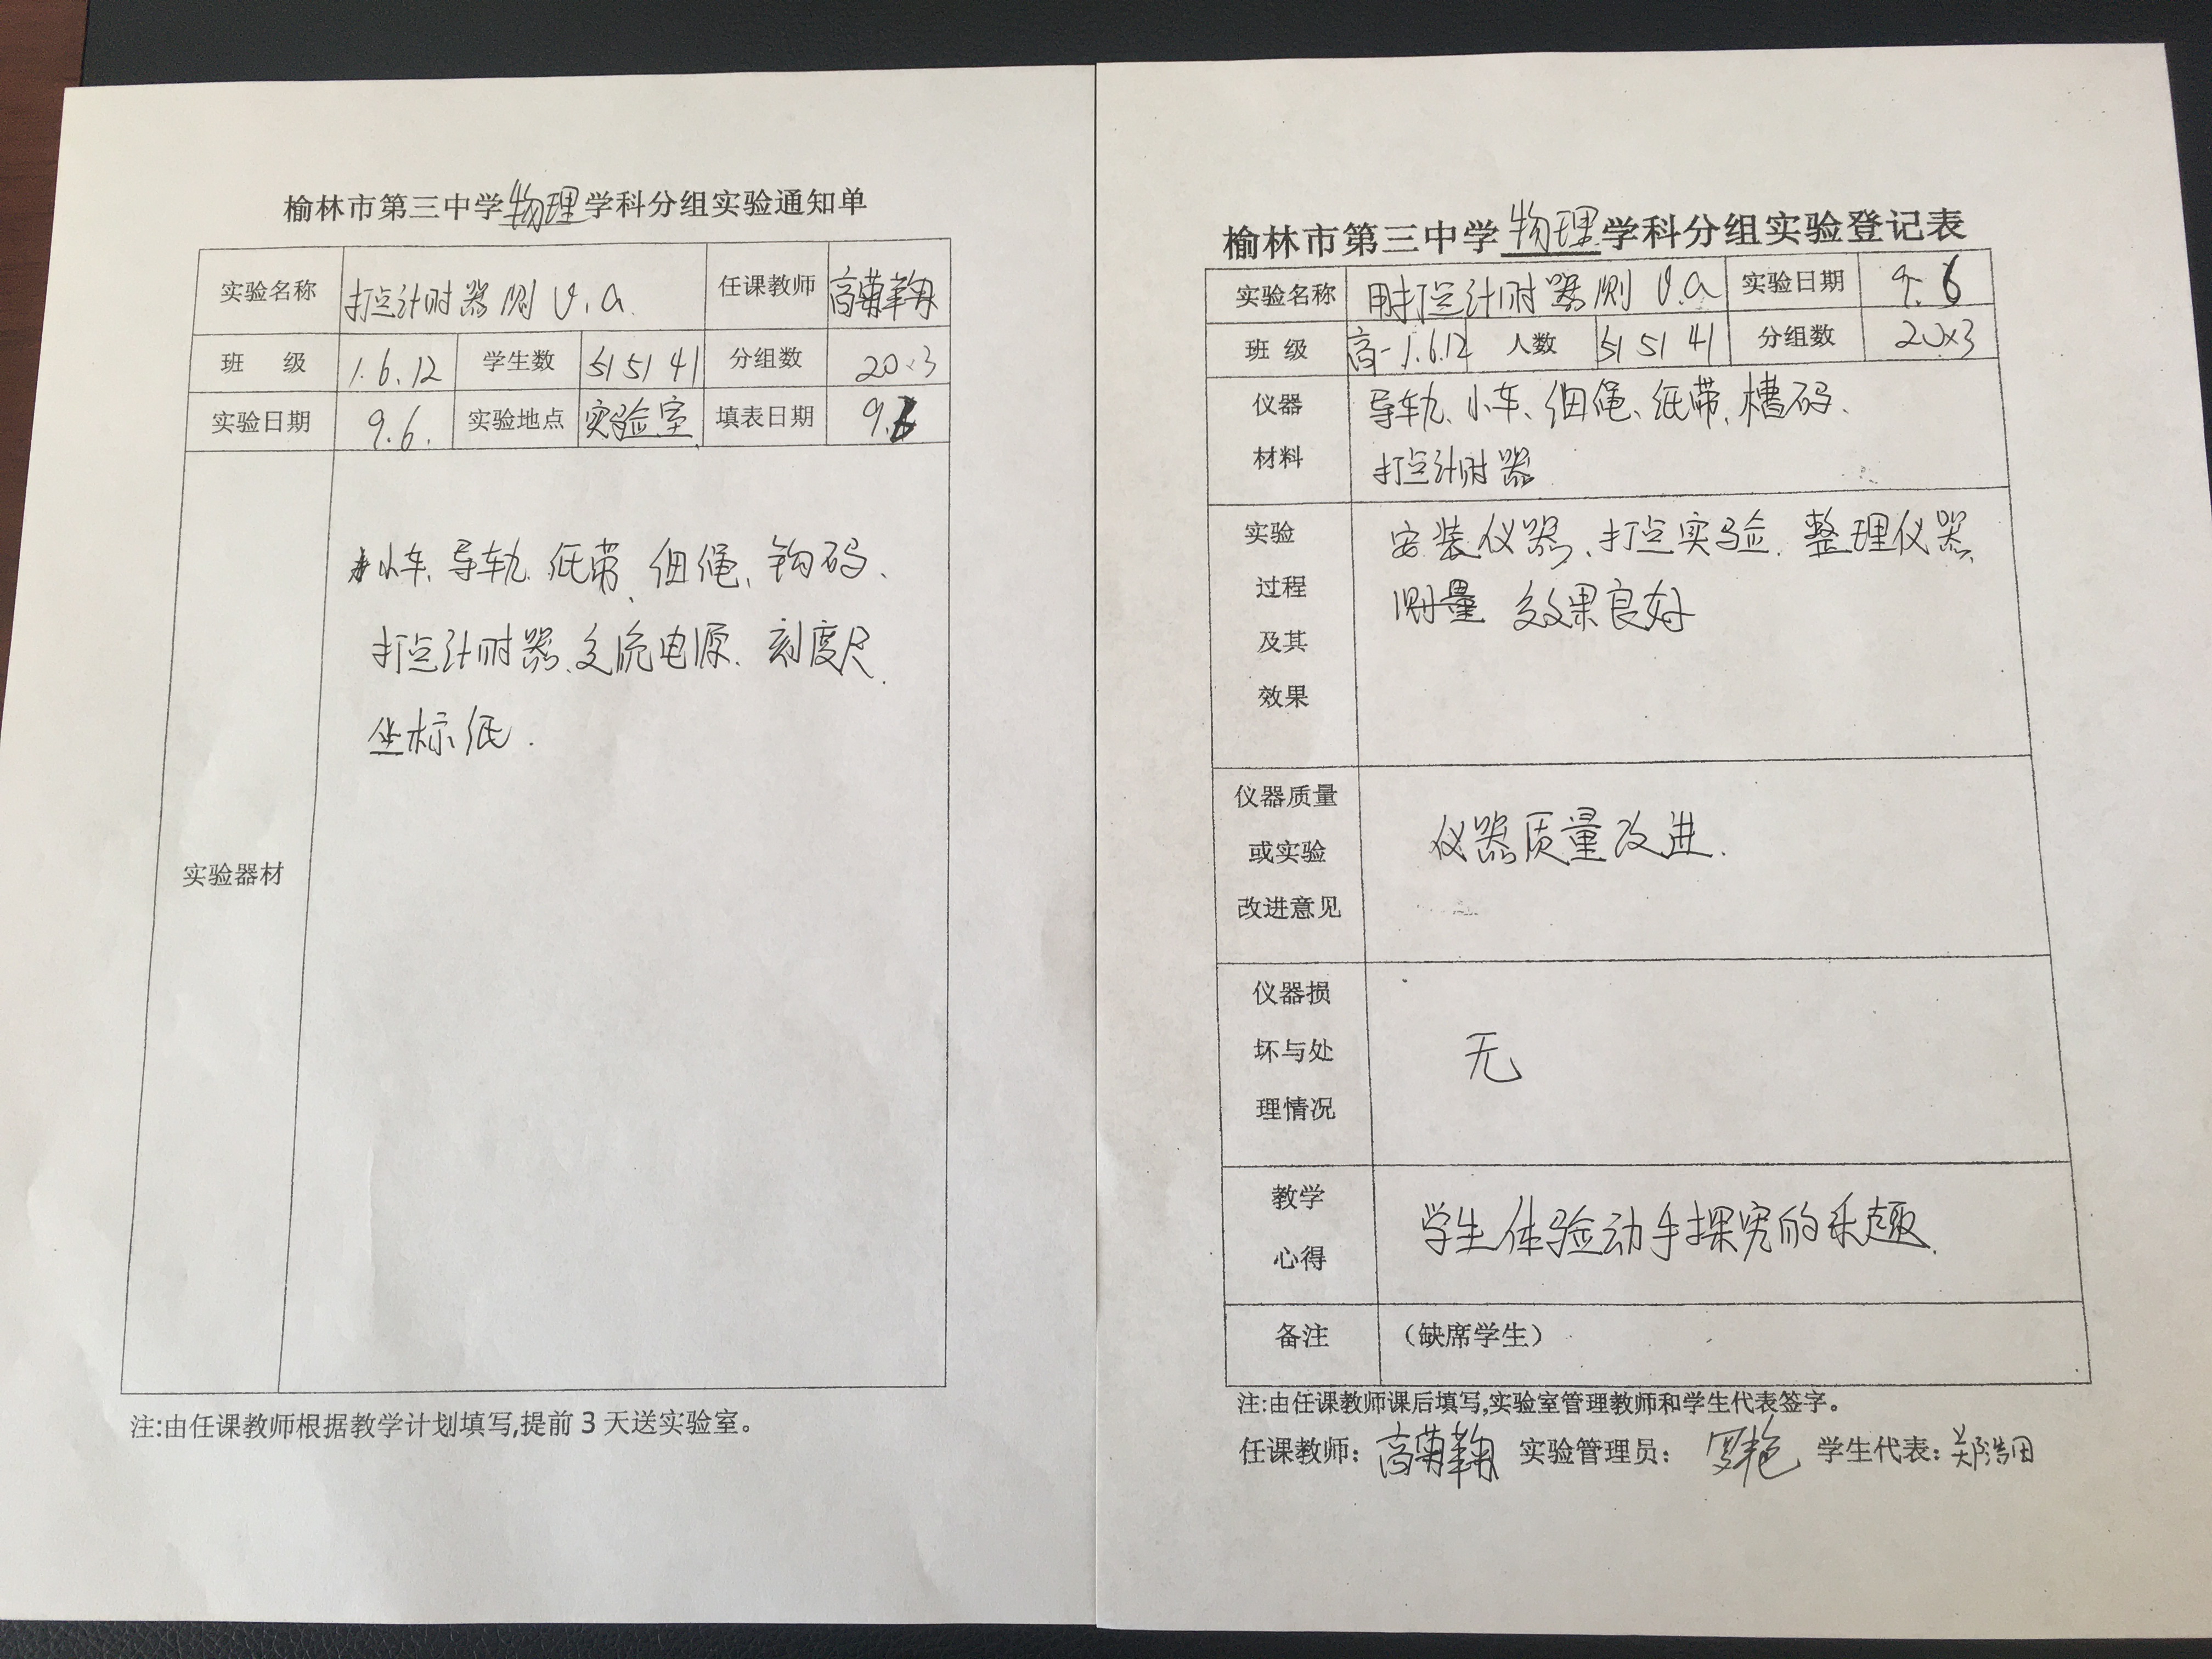 榆林市第三中学物理学科分组实验通知单
实验名称 打点计时器测 v.a. 任课教师
班 级 1.6.12 学生数 51 51 41 分组数 20×3
实验日期 9.6. 实验地点 实验室 填表日期 9.6
实验器材
小车、导轨、纸带、细绳、钩码、
打点计时器、交流电源、刻度尺、
坐标纸.
注:由任课教师根据教学计划填写,提前3天送实验室。
榆林市第三中学物理学科分组实验登记表
实验名称 用打点计时器测 v.a 实验日期 9.6
班 级 高一1.6.12 人数 51 51 41 分组数 20×3
仪器
材料
导轨、小车、细绳、纸带、槽码、
打点计时器
实验
过程
及其
效果
安装仪器、打点实验、整理仪器、
测量 效果良好
仪器质量
或实验
改进意见
仪器质量改进.
仪器损
坏与处
理情况
无
教学
心得
学生体验动手探究的乐趣.
备注 （缺席学生）
注:由任课教师课后填写,实验室管理教师和学生代表签字。
任课教师: 实验管理员: 学生代表: